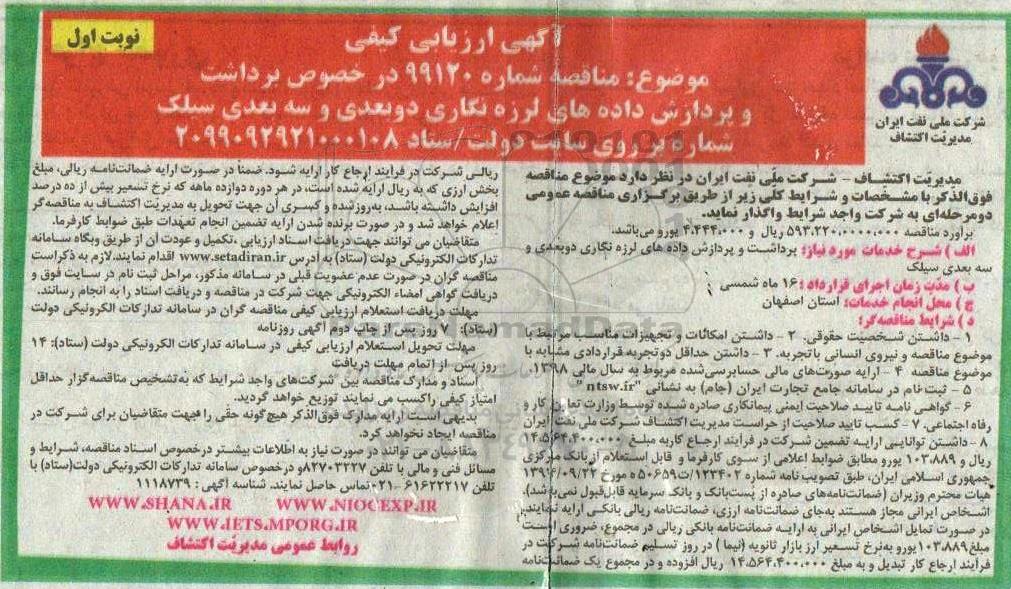 نوبت اول
آگهی ارزیابی کیفی
موضوع: مناقصه شماره ۹۹۱۲۰ در خصوص برداشت
و پردازش داده های لرزه نگاری دوبعدی و سه بعدی سیلک
شماره بر روی سایت دولت/ستاد ۲۰۹۹۰۹۲۹۲۱۰۰۰۱۰۸
شرکت ملی نفت ایران
مدیریّت اکتشاف
مدیریّت اکتشاف - شرکت ملّی نفت ایران در نظر دارد موضوع مناقصه
فوق‌الذکر با مشخصات و شرایط کلی زیر از طریق برگزاری مناقصه عمومی
دومرحله‌ای به شرکت واجد شرایط واگذار نماید.
برآورد مناقصه ۵۹۳،۲۲۰،۰۰۰۰،۰۰۰ ریال و ۴،۴۴۴،۰۰۰ یورو می‌باشد.
الف ) شرح خدمات مورد نیاز: برداشت و پردازش داده های لرزه نگاری دوبعدی و
سه بعدی سیلک
ب ) مدت زمان اجرای قرارداد : ۱۶ ماه شمسی
ج ) محل انجام خدمات: استان اصفهان
د ) شرایط مناقصه‌گر:
۱ - داشتن شخصیت حقوقی. ۲ - داشتن امکانات و تجهیزات مناسب مرتبط با
موضوع مناقصه و نیروی انسانی باتجربه. ۳ - داشتن حداقل دوتجربه قراردادی مشابه با
موضوع مناقصه ۴ - ارایه صورت‌های مالی حسابرسی‌شده مربوط به سال مالی ۱۳۹۸.
۵ - ثبت نام در سامانه جامع تجارت ایران (جام) به نشانی "ntsw.ir"
۶ - گواهی نامه تایید صلاحیت ایمنی پیمانکاری صادره شده توسط وزارت تعاون کار و
رفاه اجتماعی. ۷ - کسب تایید صلاحیت از حراست مدیریت اکتشاف شرکت ملی نفت ایران
۸ - داشتن توانایی ارایه تضمین شرکت در فرآیند ارجاع کاربه مبلغ ۱۴،۵۶۴،۴۰۰،۰۰۰
ریال و ۱۰۳،۸۸۹ یورو مطابق ضوابط اعلامی از سوی کارفرما و قابل استعلام ازبانک مرکزی
جمهوری اسلامی ایران، طبق تصویب نامه شماره ۱۲۳۴۰۲/ت۵۰۶۵۹ه مورخ ۱۳۹۴/۰۹/۲۲
هیات محترم وزیران (ضمانت‌نامه‌های صادره از پست‌بانک و بانک سرمایه قابل‌قبول نمی‌باشد).
اشخاص ایرانی مجاز هستند به‌جای ضمانت‌نامه ارزی، ضمانت‌نامه ریالی بانکی ارایه نمایند.
در صورت تمایل اشخاص ایرانی به ارایه ضمانت‌نامه بانکی ریالی در مجموع، ضروری است
مبلغ ۱۰۳،۸۸۹ یورو به‌نرخ تسعیر ارز بازار ثانویه (نیما ) در روز تسلیم ضمانت‌نامه شرکت در
فرآیند ارجاع کار تبدیل و به مبلغ ۱۴،۵۶۴،۴۰۰،۰۰۰ ریال افزوده و در مجموع یک ضمانت‌نامه
ریالی شرکت در فرایند ارجاع کار ارایه شود. ضمناً در صورت ارایه ضمانت‌نامه ریالی، مبلغ
بخش ارزی که به ریال ارایه شده است، در هر دوره دوازده ماهه که نرخ تسعیر بیش از ده درصد
افزایش داشته باشد، به‌روزشده و کسری آن جهت تحویل به مدیریّت اکتشاف به مناقصه‌گر
اعلام خواهد شد و در صورت برنده شدن ارایه تضمین انجام تعهدات طبق ضوابط کارفرما.
متقاضیان می توانند جهت دریافت اسناد ارزیابی ،تکمیل و عودت آن از طریق وبگاه سامانه
تدارکات الکترونیکی دولت (ستاد) به آدرس www.setadiran.ir اقدام نمایند.لازم به ذکراست
مناقصه گران در صورت عدم عضویت قبلی در سامانه مذکور، مراحل ثبت نام در سایت فوق و
دریافت گواهی امضاء الکترونیکی جهت شرکت در مناقصه و دریافت اسناد را به انجام رسانند.
مهلت دریافت استعلام ارزیابی کیفی مناقصه گران در سامانه تدارکات الکترونیکی دولت
(ستاد): ۷ روز پس از چاپ دوم آگهی روزنامه
مهلت تحویل استعلام ارزیابی کیفی در سامانه تدارکات الکرونیکی دولت (ستاد): ۱۴
روز پس از اتمام مهلت دریافت
اسناد و مدارک مناقصه بین شرکت‌های واجد شرایط که به‌تشخیص مناقصه‌گزار حداقل
امتیاز کیفی راکسب می نمایند توزیع خواهد گردید.
بدیهی است ارایه مدارک فوق‌الذکر هیچ‌گونه حقی را جهت متقاضیان برای شرکت در
مناقصه ایجاد نخواهد کرد.
متقاضیان می توانند در صورت نیاز به اطلاعات بیشتر درخصوص اسناد مناقصه، شرایط و
مسائل فنی و مالی با تلفن ۸۲۷۰۳۲۲۷و درخصوص سامانه تدارکات الکترونیکی دولت(ستاد) با
تلفن ۶۱۶۲۲۲۱۷ -۰۲۱تماس حاصل نمایند. شناسه آگهی : ۱۱۱۸۷۳۹
WWW.SHANA.IR WWW.NIOCEXP.IR
WWW.IETS.MPORG.IR
روابط عمومی مدیریّت اکتشاف